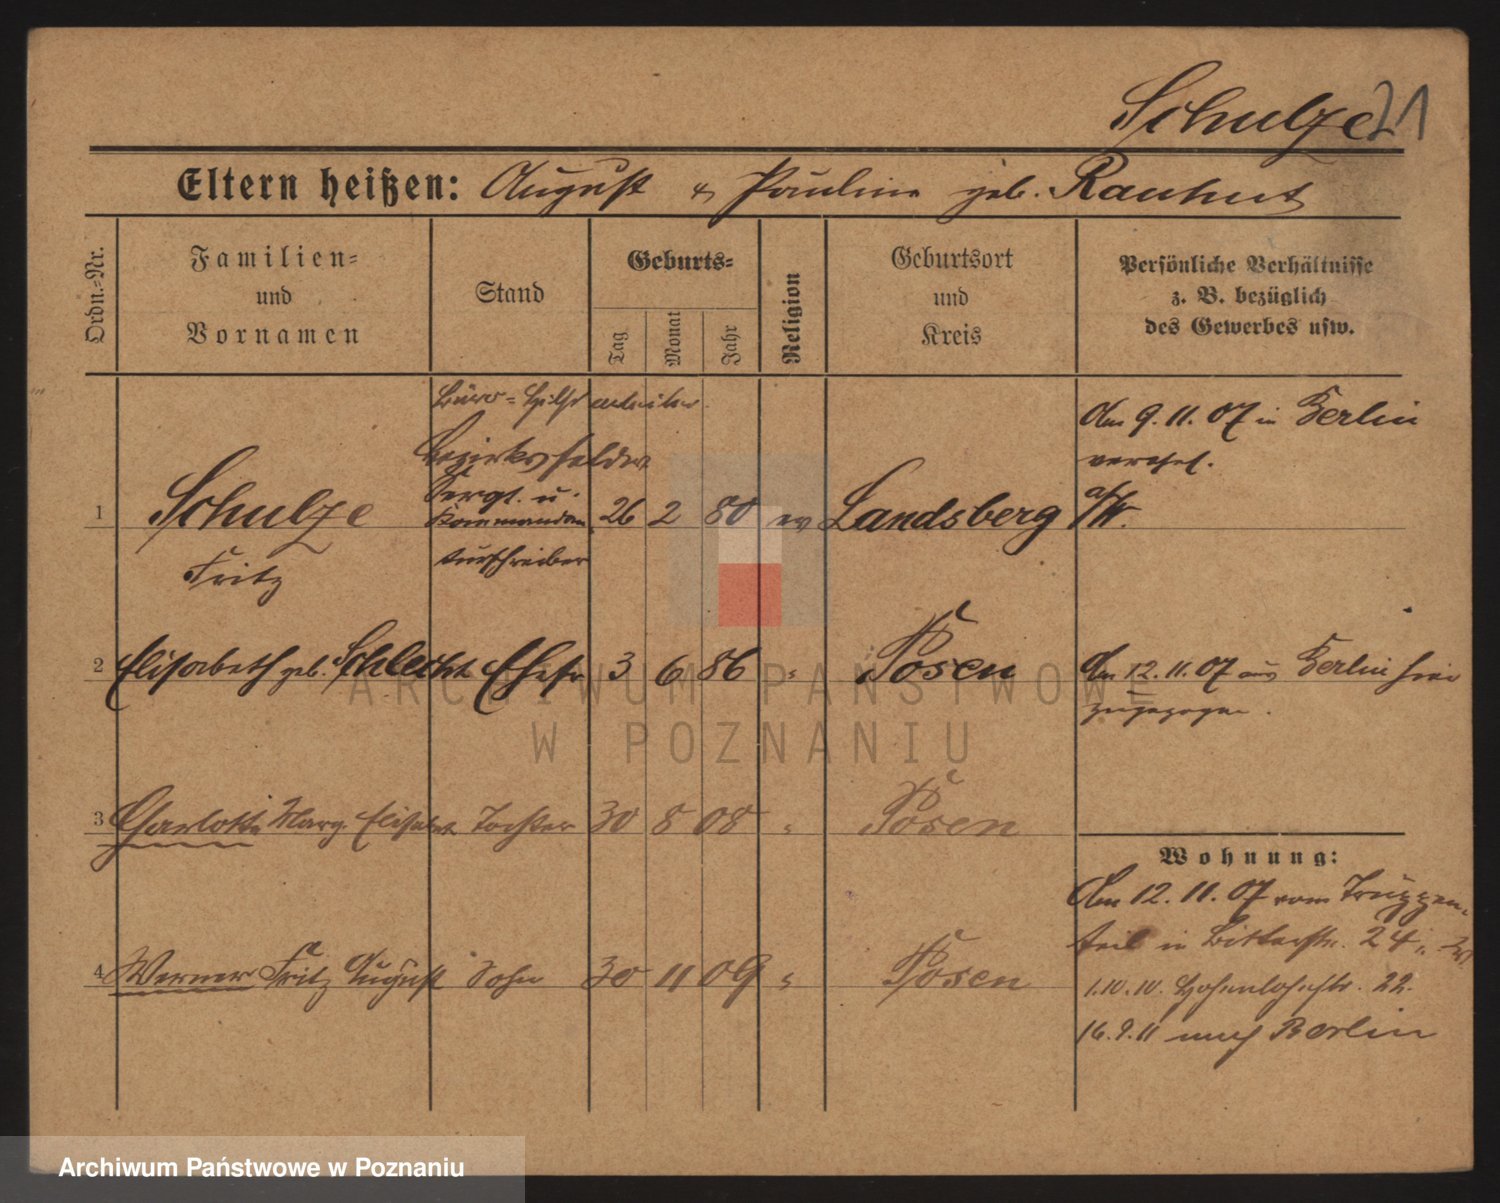 Schulze 21
Eltern heißen: August & Pauline geb. Rauhut
Ordn.-Nr.
Familien-
und
Vornamen
Stand
Geburts-
Tag
Monat
Jahr
Religion
Geburtsort
und
Kreis
Persönliche Verhältnisse
z. B. bezüglich
des Gewerbes usw.
Büro-Hilfsarbeiter
Bezirksfeldw
Sergt. u.
1 Schulze
Kommandan
turschreiber
Fritz
26 2 80 ev Landsberg a/W.
Am 9.11.07 in Berlin
verehel.
2 Elisabeth geb. Schlecht Ehefr 3 6 86 " Posen
Am 12.11.07 aus Berlin hier
zugezogen.
3 Charlotte Marg. Elisabet Tochter 30 8 08 " Posen
4 Werner Fritz August Sohn 30 11 09 " Posen
Wohnung:
Am 12.11.07 vom Truppen-
teil in Bitterstr. 24
1.10.10. Hohenlohestr. 22.
16.9.11 nach Berlin
ARCHIWUM PAŃSTWOW
W POZNANIU
Archiwum Państwowe w Poznaniu